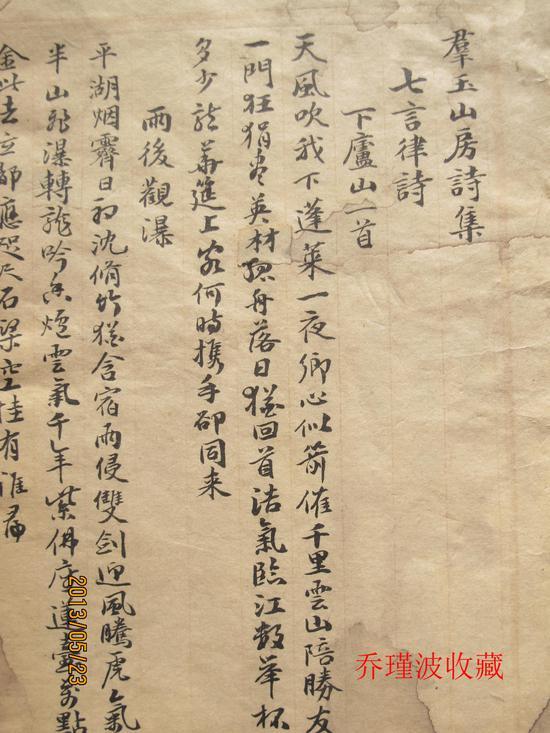 羣玉山房詩集
七言律詩
下廬山一首
天風吹我下蓬萊一夜鄉心似箭催千里雲山陪勝友
一門狂狷盡英材孤舟落日猶回首浩氣臨江數舉杯
多少龍華進上客何時携手卻同来
雨後觀瀑
平湖烟霽日初沈脩竹猶含宿雨侵雙劍迎風騰虎氣
半山飛瀑轉龍吟香爐雲氣千年紫佛座蓮臺萬點
金此去應咫尺石梁空挂有誰
2013/05/23
乔瑾波收藏